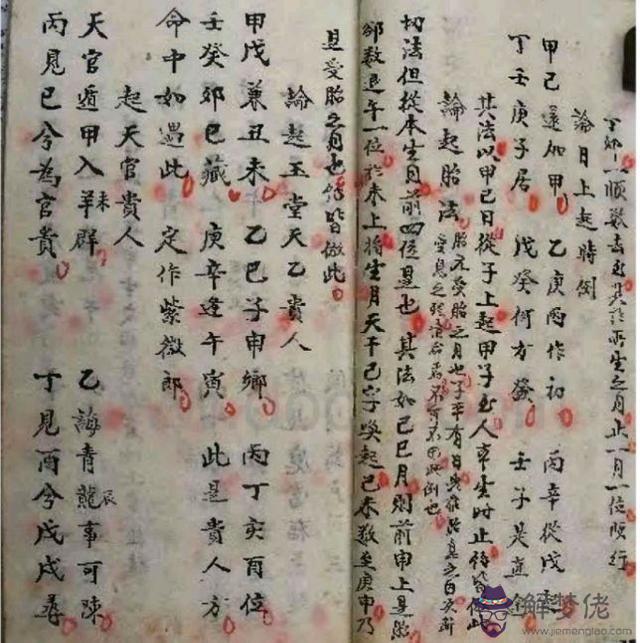 一順数去至其所生之月止一月一位順行
論日上起時例
甲己還加甲 乙庚丙作初 丙辛從戊起
丁壬庚子居 戊癸何方發 壬子是直
其法以甲己日從子上起甲子至人本生時止餘皆倣此
論起胎法 胎元受胎之月也子平有
切法但從本生月前四位是也 其法如己巳月則前申上是
卻数退午一位於未上将生月天干己字喚起己未数至庚申乃
是受胎之月也餘皆倣此
論起玉堂天乙貴人
甲戊兼丑未 乙巳子申鄉 丙丁亥酉位
壬癸卯巳藏 庚辛逢午寅 此是貴人方
命中如遇此 定作紫微郎
起天官貴人
天官遁甲入羊未群 乙誨青龍辰事可陳
丙見巳兮為官貴 丁見酉兮戊戌尋
解梦佬
www.jiemenglao.com